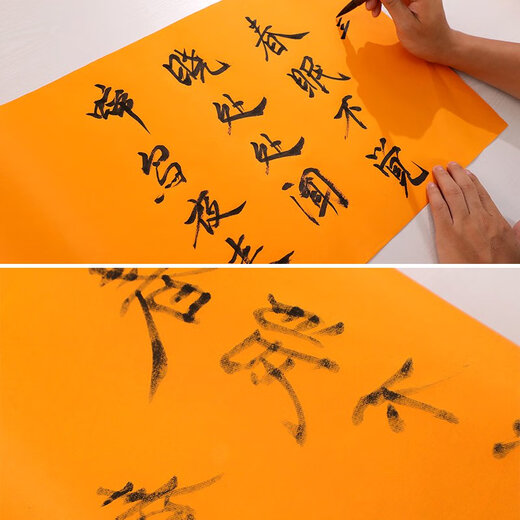 春眠不觉
晓处处闻
啼鸟夜来
春眠不